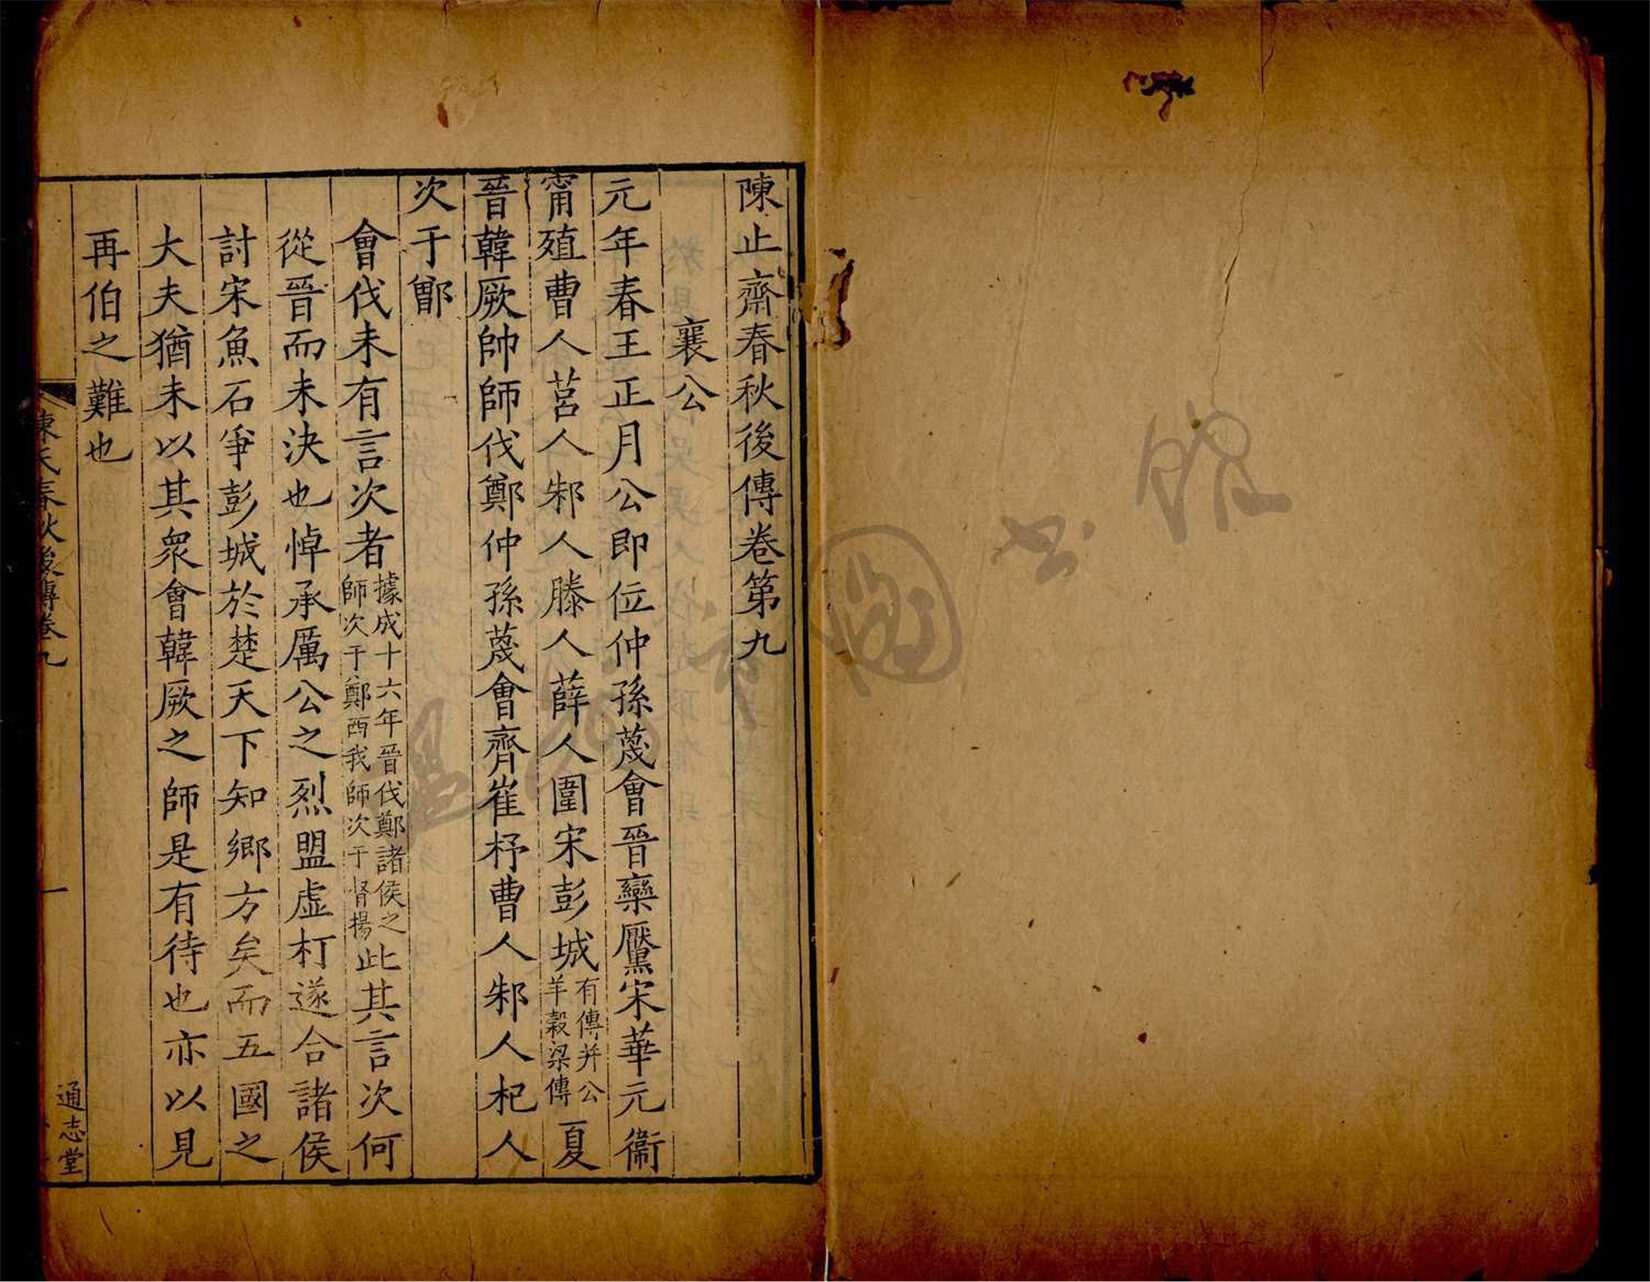 陳止齋春秋後傳卷第九
襄公
元年春王正月公即位仲孫蔑會晉欒黶宋華元衞
甯殖曹人莒人邾人滕人薛人圍宋彭城有傳并公羊穀梁傳夏
晉韓厥帥師伐鄭仲孫蔑會齊崔杼曹人邾人杞人
次于鄫
會伐未有言次者據成十六年晉伐鄭諸侯之師次于鄭西我師次于督揚此其言次何
從晉而未決也悼承厲公之烈盟虛朾遂合諸侯
討宋魚石爭彭城於楚天下知鄉方矣而五國之
大夫猶未以其衆會韓厥之師是有待也亦以見
再伯之難也
陳氏春秋後傳卷九
一
通志堂
圖書館